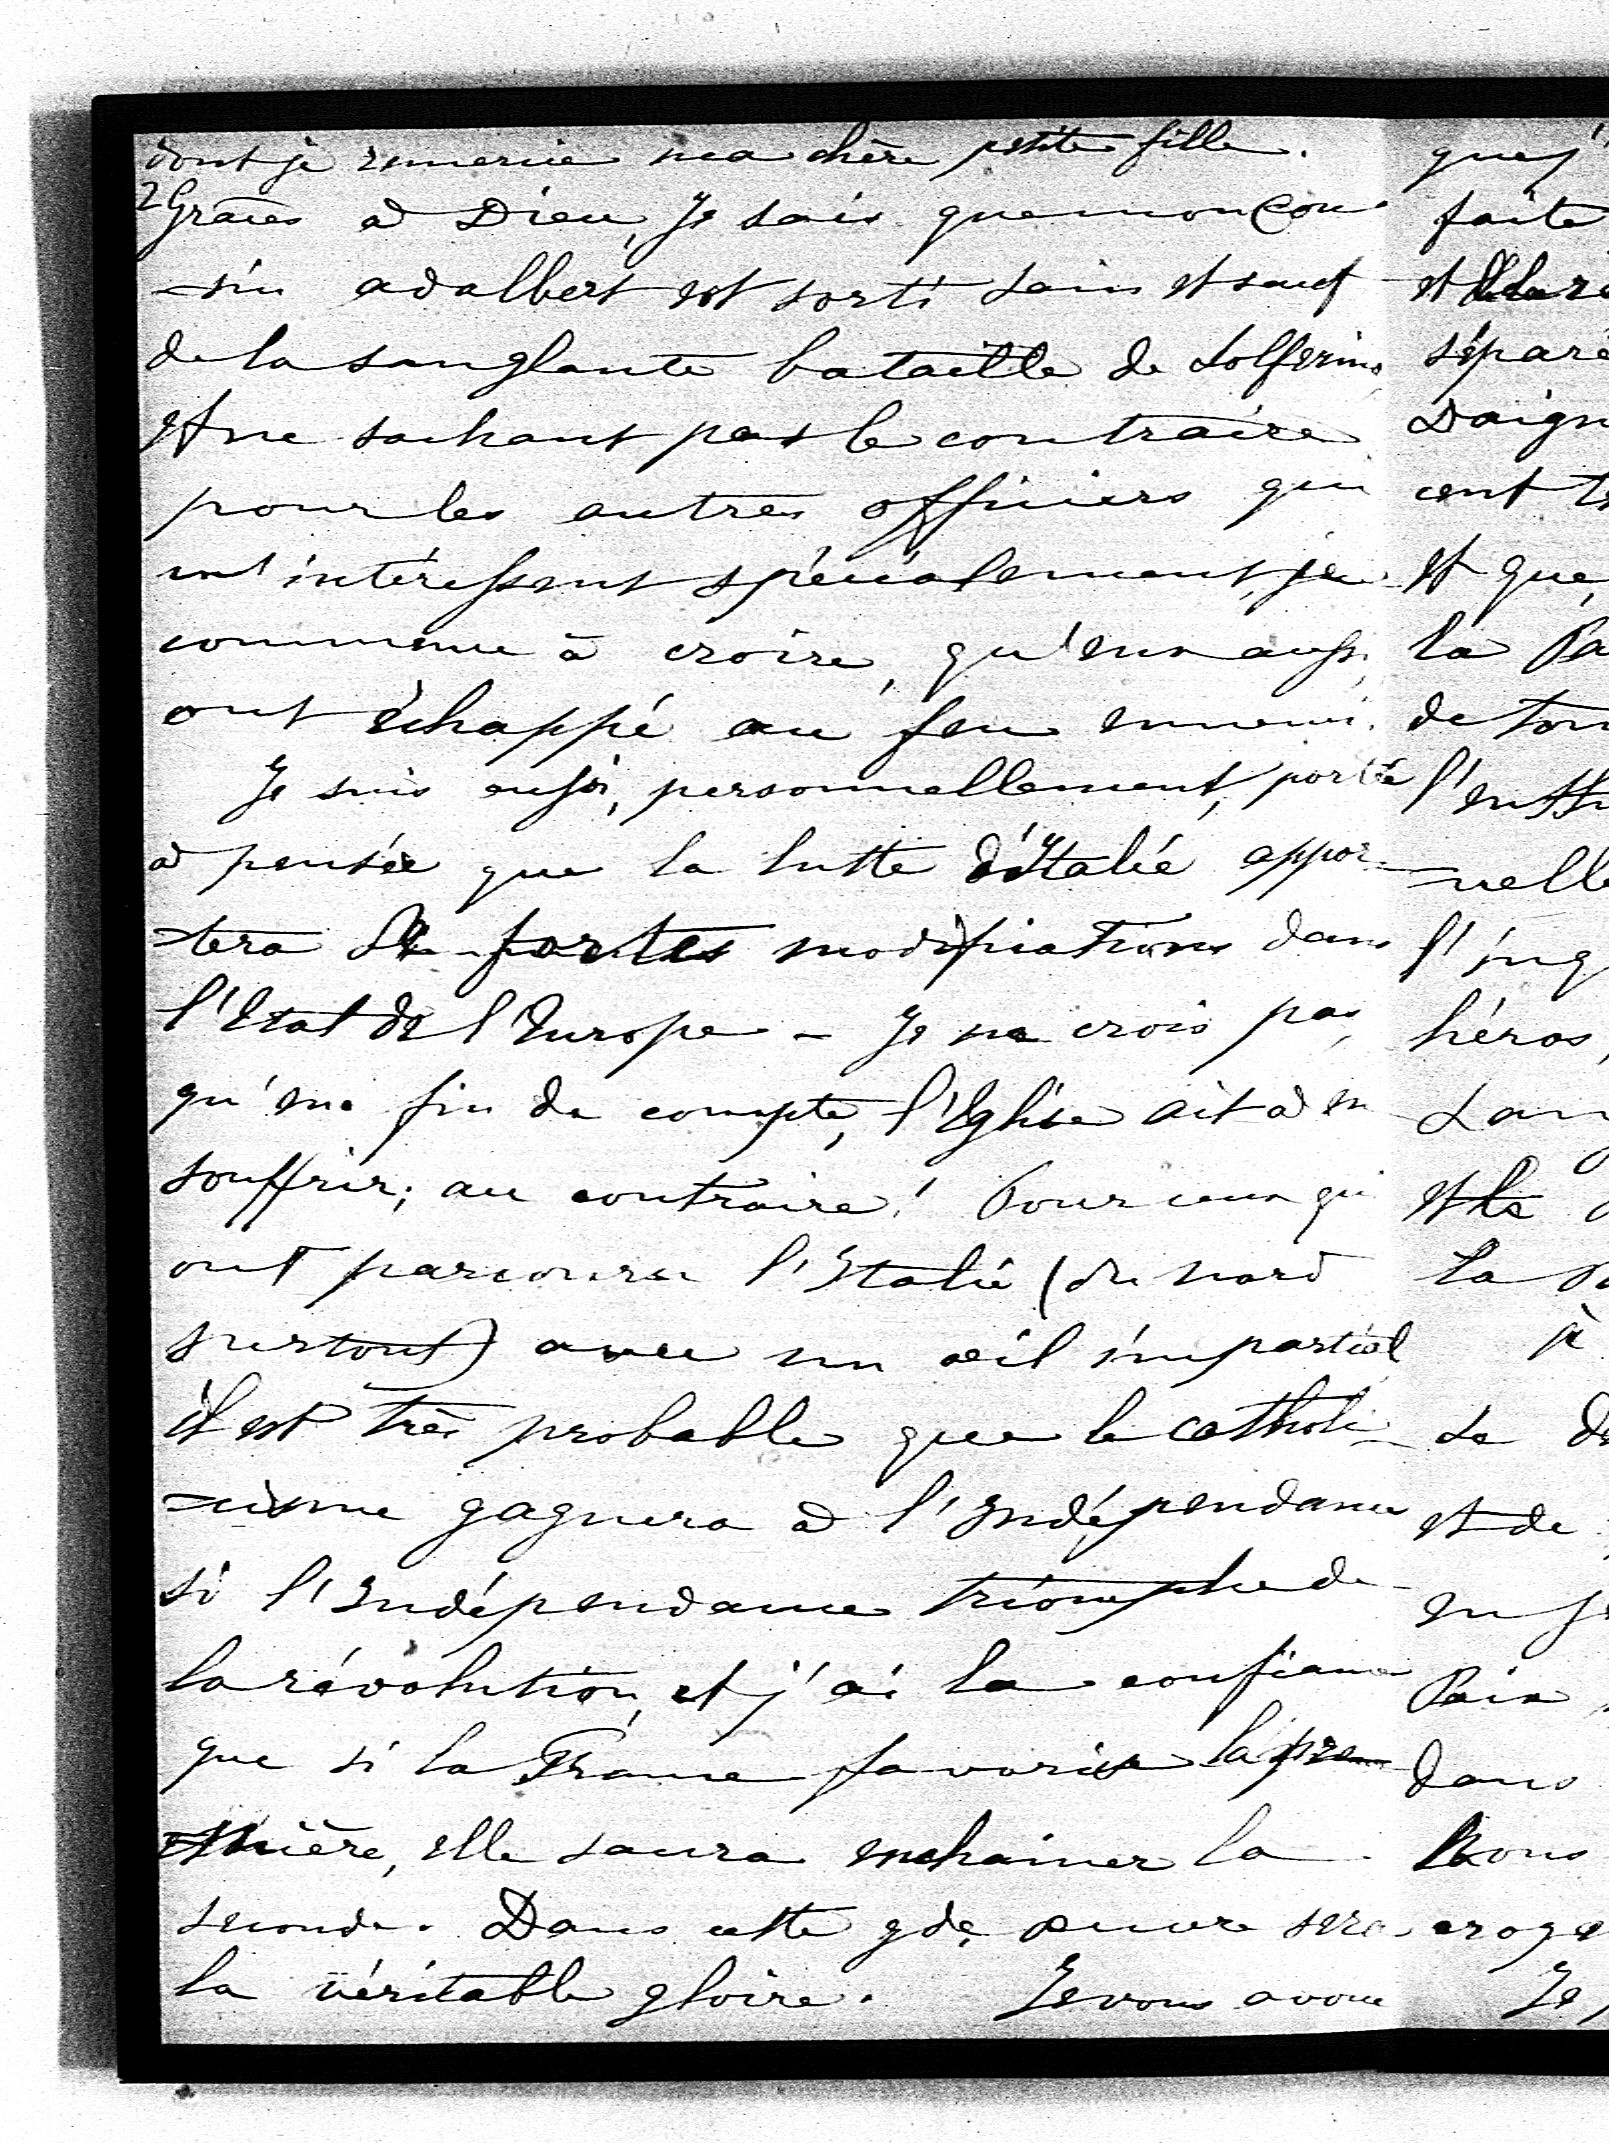 dont je remercie ma chère petite fille.
2 Grâces à Dieu, Je sais que mon Cou
-sin adalbert est sorti sain et sauf
de la sanglante bataille de Solferino
et ne sachant pas le contraire
pour les autres officiers qui
m'intéressent spécialement, je
commence à croire, qu'eux aussi,
ont échappé au feu ennemi.
Je suis aussi, personnellement, porté
à pensée que la lutte d'Italie appor-
-tera de fortes modifications dans
l'Etat de l'Europe - Je ne crois pas,
qu'en fin de compte, l'Eglise ait à en
souffrir; au contraire! Pour ceux qui
ont parcouru l'Italie (du nord
surtout) avec un œil impartial
il est très probable que le catholi-
-cisme gagnera à l'Indépendance
si l'Indépendance triomphe de
la révolution, et j'ai la confiance
que si la France favorise la pre-
-mière, elle saura enchainer la
seconde. Dans cette gde, œuvre sera
la véritable gloire. Je vous avoue
que j'
faite
et
séparé
Daign
cent
et que,
la Pa
de ton
-nelle
l'
héros,
et la
la
je
de
et de
en
Paix
dans
Nous
Je